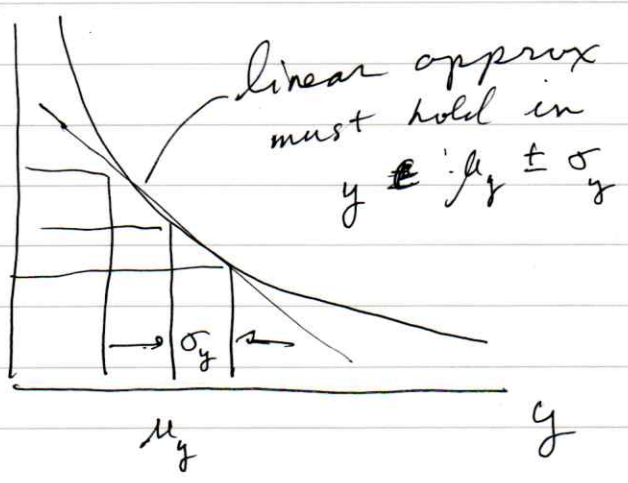 linear approx
must hold in
y ∈ : μ_y ± σ_y
σ_y
μ_y
y